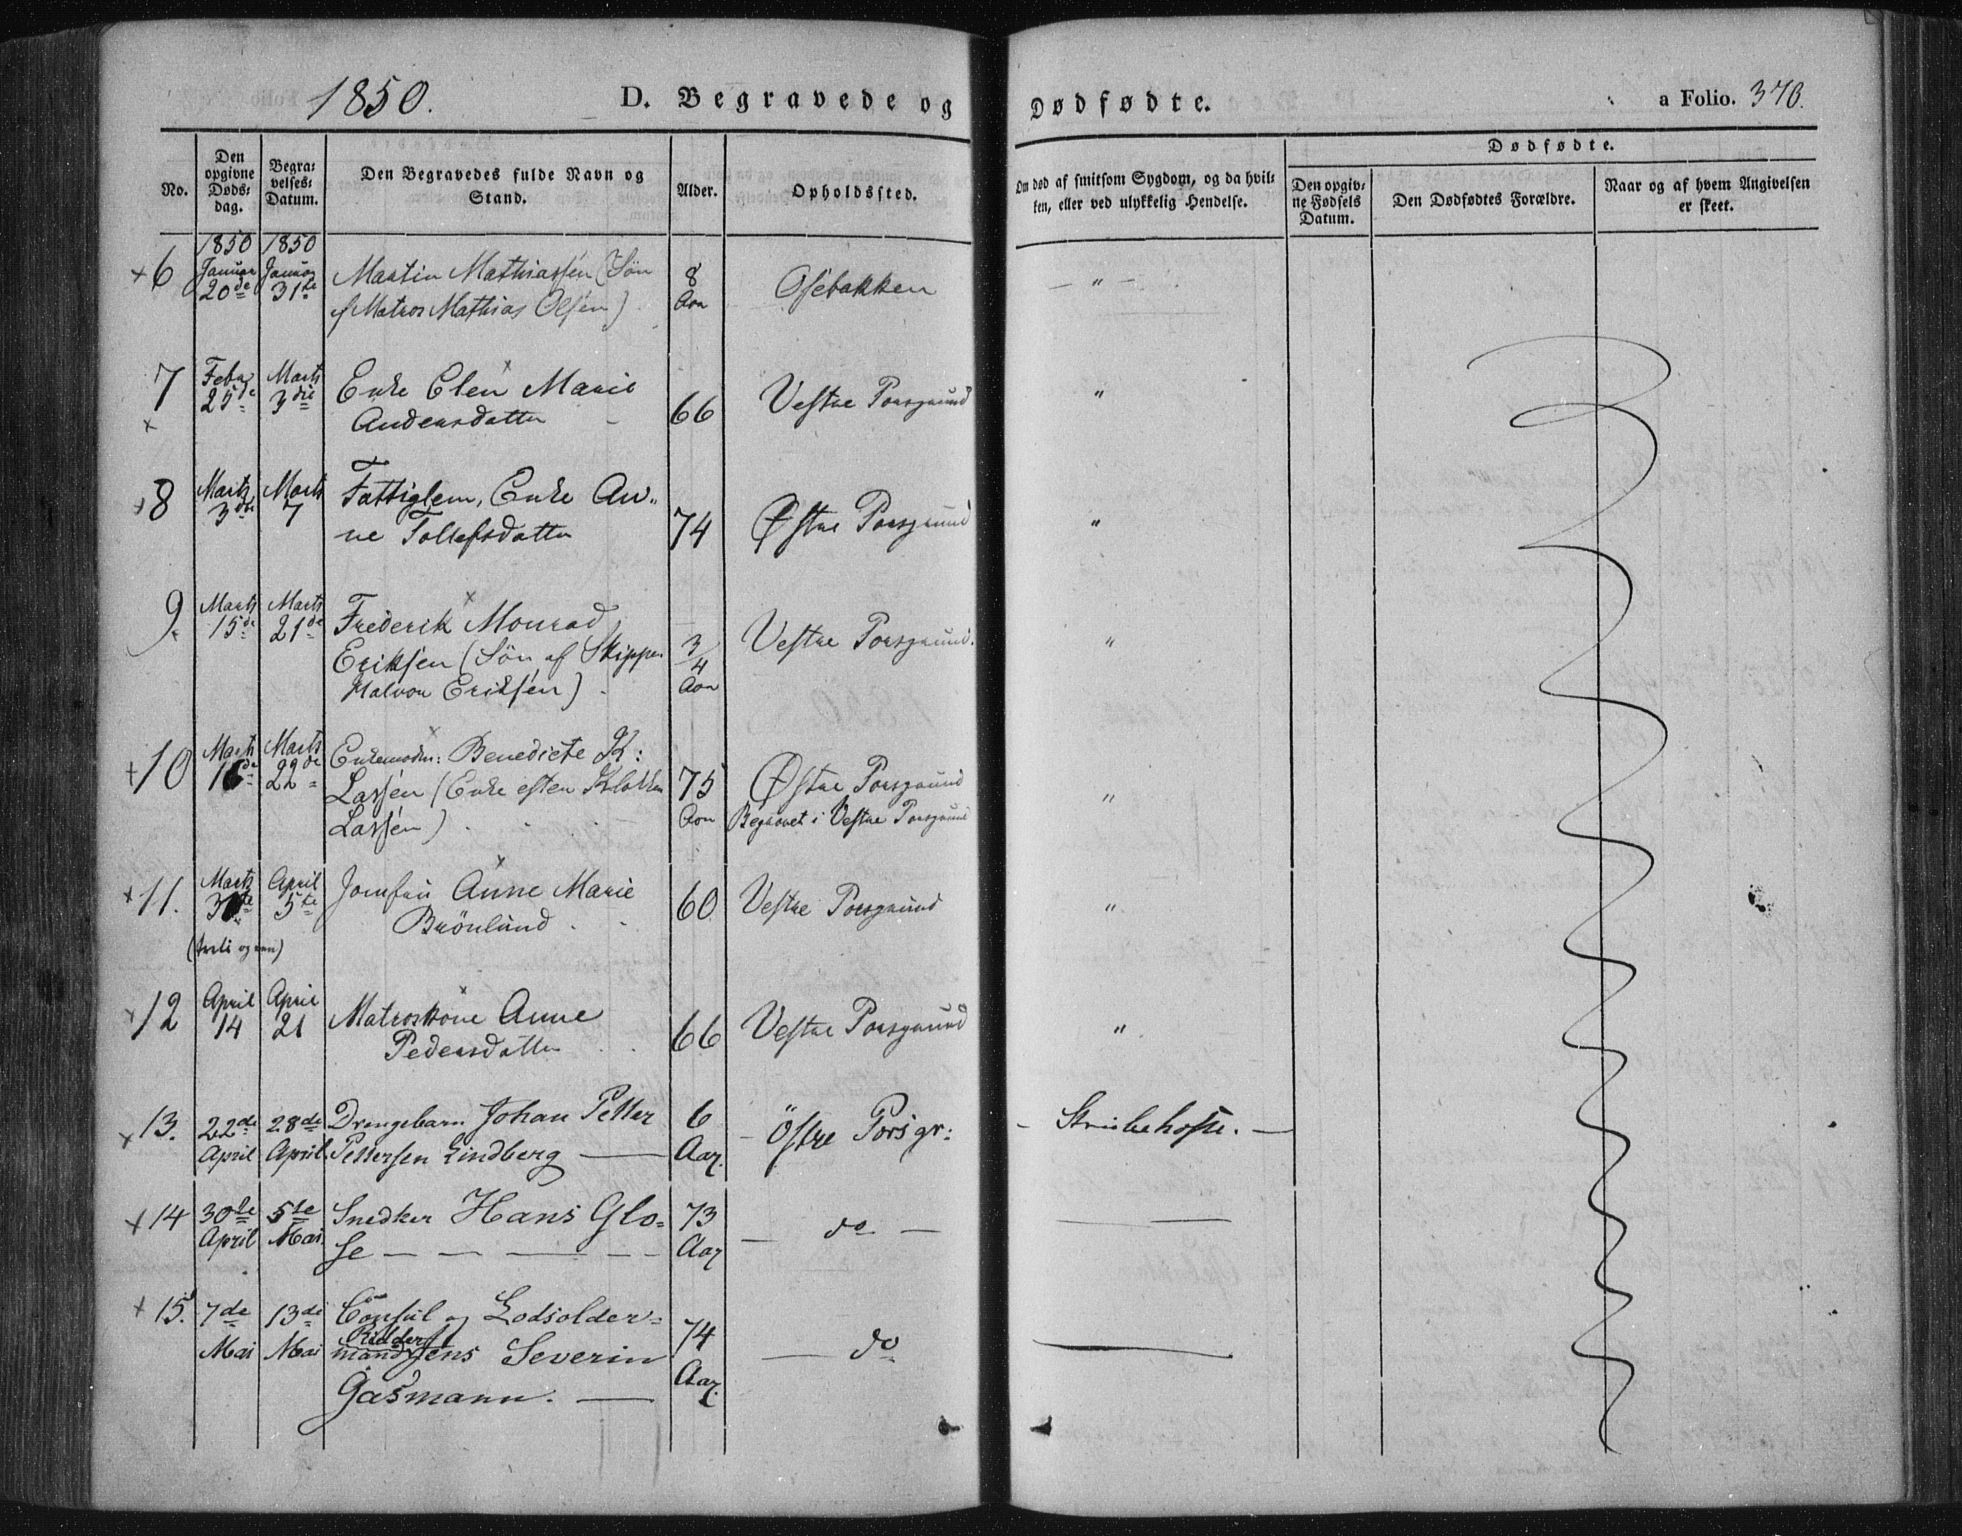 1850. D. Begravede og Dødfødte. a Folio. 370.
No. Den opgivne Døds-dag. Begra-velses-Datum. Den Begravedes fulde Navn og Stand. Alder. Opholdssted. Om død af smitsom Sygdom, og da hvil-ken, eller ved ulykkelig Hendelse. Dødfødte.
Den opgiv-ne Fødsels Datum. Den Dødfødtes Forældre. Naar og af hvem Angivelsen er skeet.
1850 1850
+ 6 Januar 20de Januar 31te Martin Mathiassen (Søn 8 Aar Osebakken — " —
af Matros Mathias Olsen)
7 Febr 25de Marts 3die Enke Elen Marie 66 Vestre Porsgrund "
x Andersdatter
+ 8 Marts 3die Marts 7 Fattiglem, Enke An- 74 Østre Porsgrund "
ne Tollefsdatter
9. Marts 15de Marts 21de Frederik Monrad 3/4 Aar Vestre Porsgrund. "
Eriksen (Søn af Skipper
Halvor Eriksen)
+ 10 Marts 16de Marts 22de Benedicte K: 75 Aar Østre Porsgrund "
Lassen (Enke efter Klokker Begravet i Vestre Porsgrund
Lassen)
+ 11. Marts April 5te Jomfru Anne Marie 60 Vestre Porsgrund "
Brönlund
+ 12 April 14 April 21 Matroskone Anne 66 Vestre Porsgrund "
Pedersdatter
x 13. 22de April 28de April Drengebarn Johan Petter 6 Aar. — Östre Porsgr: — Strubehoste. —
Pettersen Lindberg —
+ 14 30te April 5te Mai Snedker Hans Glo- 73 Aar — do —
se — — — —
+ 15. 7de Mai 13de Mai Consul og Lodsolder- 74 Aar. — do
Ridder
mand Jens Severin
Gasmann. —